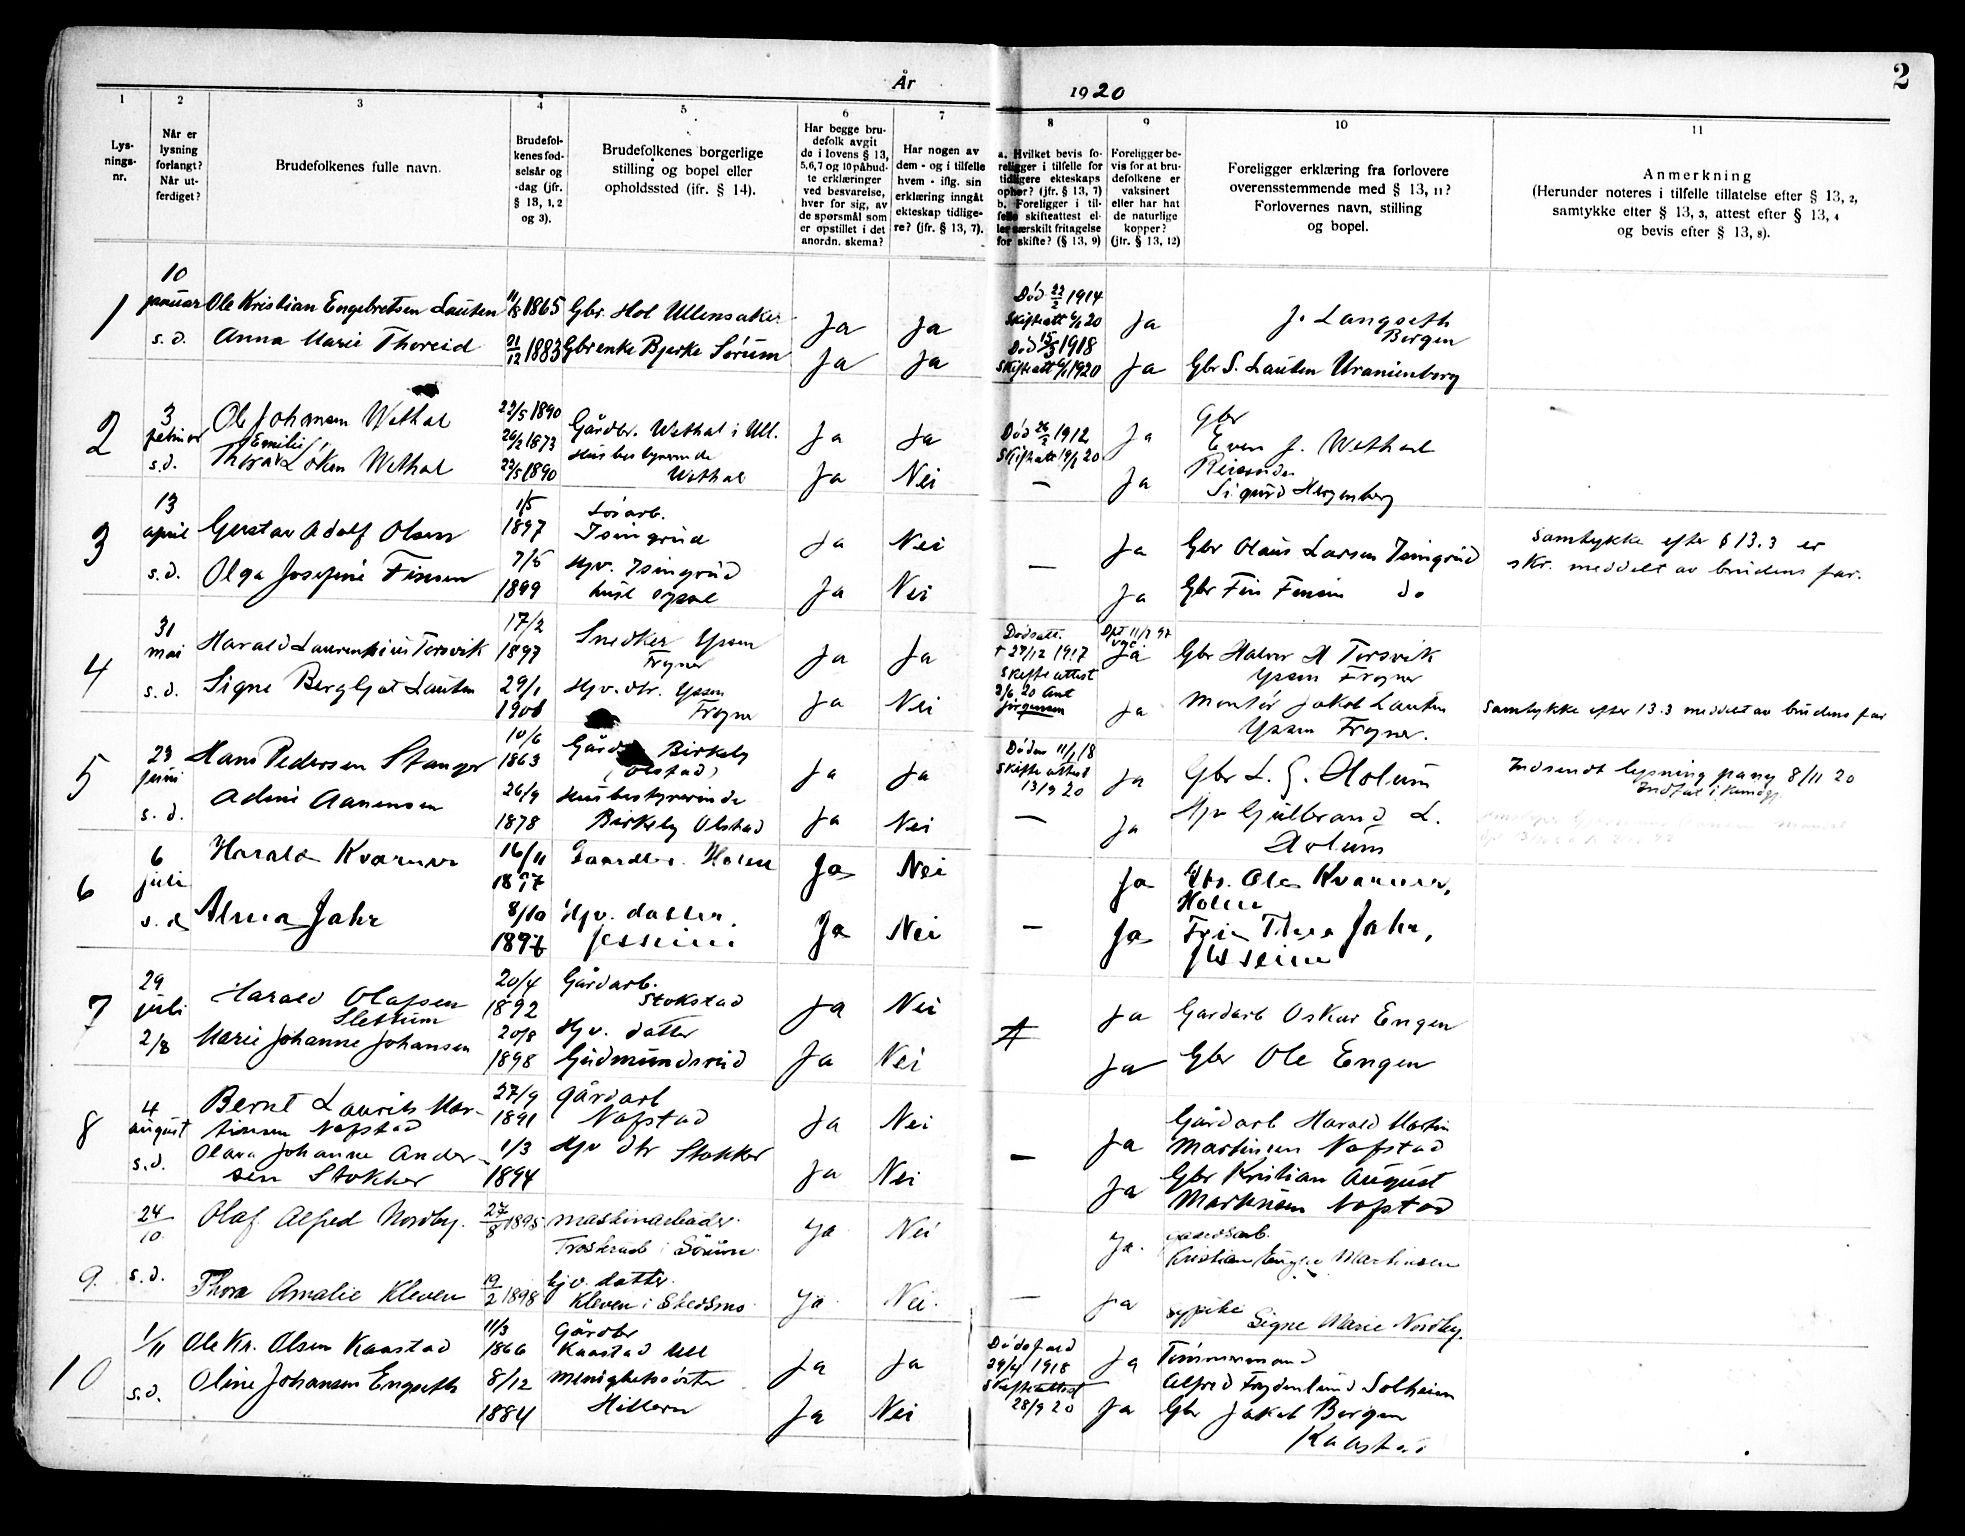 2
År 1920
1
Lys-
nings-
nr.
2
Når er
lysning
forlangt?
Når ut-
ferdiget?
3
Brudefolkenes fulle navn.
4
Brudefol-
kenes fød-
selsår og
-dag (jfr.
§ 13, 1, 2
og 3).
5
Brudefolkenes borgerlige
stilling og bopel eller
opholdssted (ifr. § 14).
6
Har begge bru-
defolk avgit
de i lovens § 13,
5,6,7 og 10 påbud-
te erklæringer
ved besvarelse,
hver for sig, av
de spørsmål som
er opstillet i det
anordn. skema?
7
Har nogen av
dem - og i tilfelle
hvem - iflg. sin
erklæring inngåt
ekteskap tidlige-
re? (jfr. § 13, 7).
8
a. Hvilket bevis fo-
religger i tilfelle for
tidligere ekteskaps
ophør? (jfr. § 13, 7)
b. Foreligger i til-
felle skifteattest el-
ler særskilt fritagelse
for skifte? (§ 13, 9)
9
Foreligger be-
vis for at bru-
defolkene er
vaksinert
eller har hat
de naturlige
kopper?
(jfr. § 13, 12)
10
Foreligger erklæring fra forlovere
overensstemmende med § 13, 11?
Forlovernes navn, stilling
og bopel.
11
Anmerkning
(Herunder noteres i tilfelle tillatelse efter § 13, 2,
samtykke efter § 13, 3, attest efter § 13, 4
og bevis efter § 13, 8).
1
10
januar Ole Kristian Engebretsen Lauten 11/8 1865 Gbr. Hol Ullensaker Ja Ja Død 22/2 1914 Skifteatt 6/1 20 Ja J. Langseth
Bergen
s.d. Anna Marie Thoreid 21/12 1883 Gbrenke Bjerke Sørum Ja Ja Død 15/3 1918 Skifteatt 6/1 1920 Ja Gbr S. Lauten Uranienborg
2
3
februar Ole Johansen Wethal 22/5 1890 26/2 1873 Gårdbr. Wethal i Ull. Ja Ja Død 26/2 1912 Skifteatt 19/1 20 Ja Gbr
Even J. Wethal
s.d. Thora Emilie Løken Wethal 22/5 1890 Husbestyrerinde
Wethal Ja Nei — Ja Reisende
Sigurd Herzenberg
3
13
april Gustav Adolf Olsen 1/5
1897 Isingrud Ja Nei — Ja Gbr Olaus Larsen Isingrud Samtykke efter § 13.3 er
skr. meddelt av brudens far.
s.d. Olga Josefine Finsen 7/5
1899 Hjv. Isingrud Ja Nei Ja Gbr Finsen do
4
31
mai Harald Laurentius Torsvik 17/2
1897 Snedker Yssen
Frogner Ja Ja Dødsatt.
+ 27/12 1917
Skifteattest
3/6 20 Amt
Jørgensen Ja Gbr Halvor H Torsvik
Yssen Frogner
s.d. Signe Bergljot Lauten 29/1
Hjv. dtr. Yssen
Frogner Ja Nei Ja Montør Jakob Lauten
Yssen Frogner. Samtykke efter 13.3 meddelt av brudens far
5
23
juni Hans Pedersen Stanger 10/6
1863 Birkely
(Olstad) Ja Ja Døden 11/1 18
Skifteattest
13/9 20 Ja Gbr L. G. Holum Indsendt lysning pany 8/11 20
s.d. Adine Aanensen 26/9
1878 Husbestyrerinde
Birkely Olstad Ja Nei — Ja Hjv Gulbrand L.
Holum
6
6
juli Harald Kværner 16/11
Gaardbr. Holm Ja Nei Ja Gbr. Ole Kværner,
s.d. Alma Jahr 8/10
Hjv. datter,
Jesseim Ja Nei — Ja Thea Jahr,
Jesseim
7
29
juli Harald Olafsen
Slettum 20/4
1892 Gårdarb.
Stokstad Ja Nei Ja Gardarb Oskar Engen
2/8 Marie Johanne Johansen 20/8
1898 Hjv. datter
Gudmundsrud Ja Nei Ja Gbr Ole Engen
8
4
august Bernt Laurits Mar-
tinsen Nafstad 27/9
1891 gårdarb
Nafstad Ja Nei — Ja Gårdarb Harald Martin
Martinsen Nafstad
s.d. Olava Johanne Ander-
sen Stokker 1/3
1894 Hjv dtr Stokker Ja Nei Ja Gbr Kristian August
Martinsen Nafstad
9.
24/10 Olaf Alfred Nordby. 27/8 1895 maskinarbeider.
i Sørum. Ja Nei Ja. gaardsarb.
Kristian Engne Martinsen
s.d. Thora Amalie Kleven 19/2 1898 hjv. datter.
Kleven i Skedsmo. Ja Nei. — Ja sypike
Signe Marie Nordby.
10
1/11 Ole Kr. Olsen Kaastad 11/3
1866 Gårdbr
Kaastad Ull Ja Ja Dødsfald
29/4 1918
Skifteattest
28/9 20 Ja Tømmermand
Alfred Frydenlund Solheim
s.d. Oline Johansen Engseth 8/12
1884 Menighetssøster
Hillern Ja Nei Ja Gbr Jakob Bergen
Kaastad